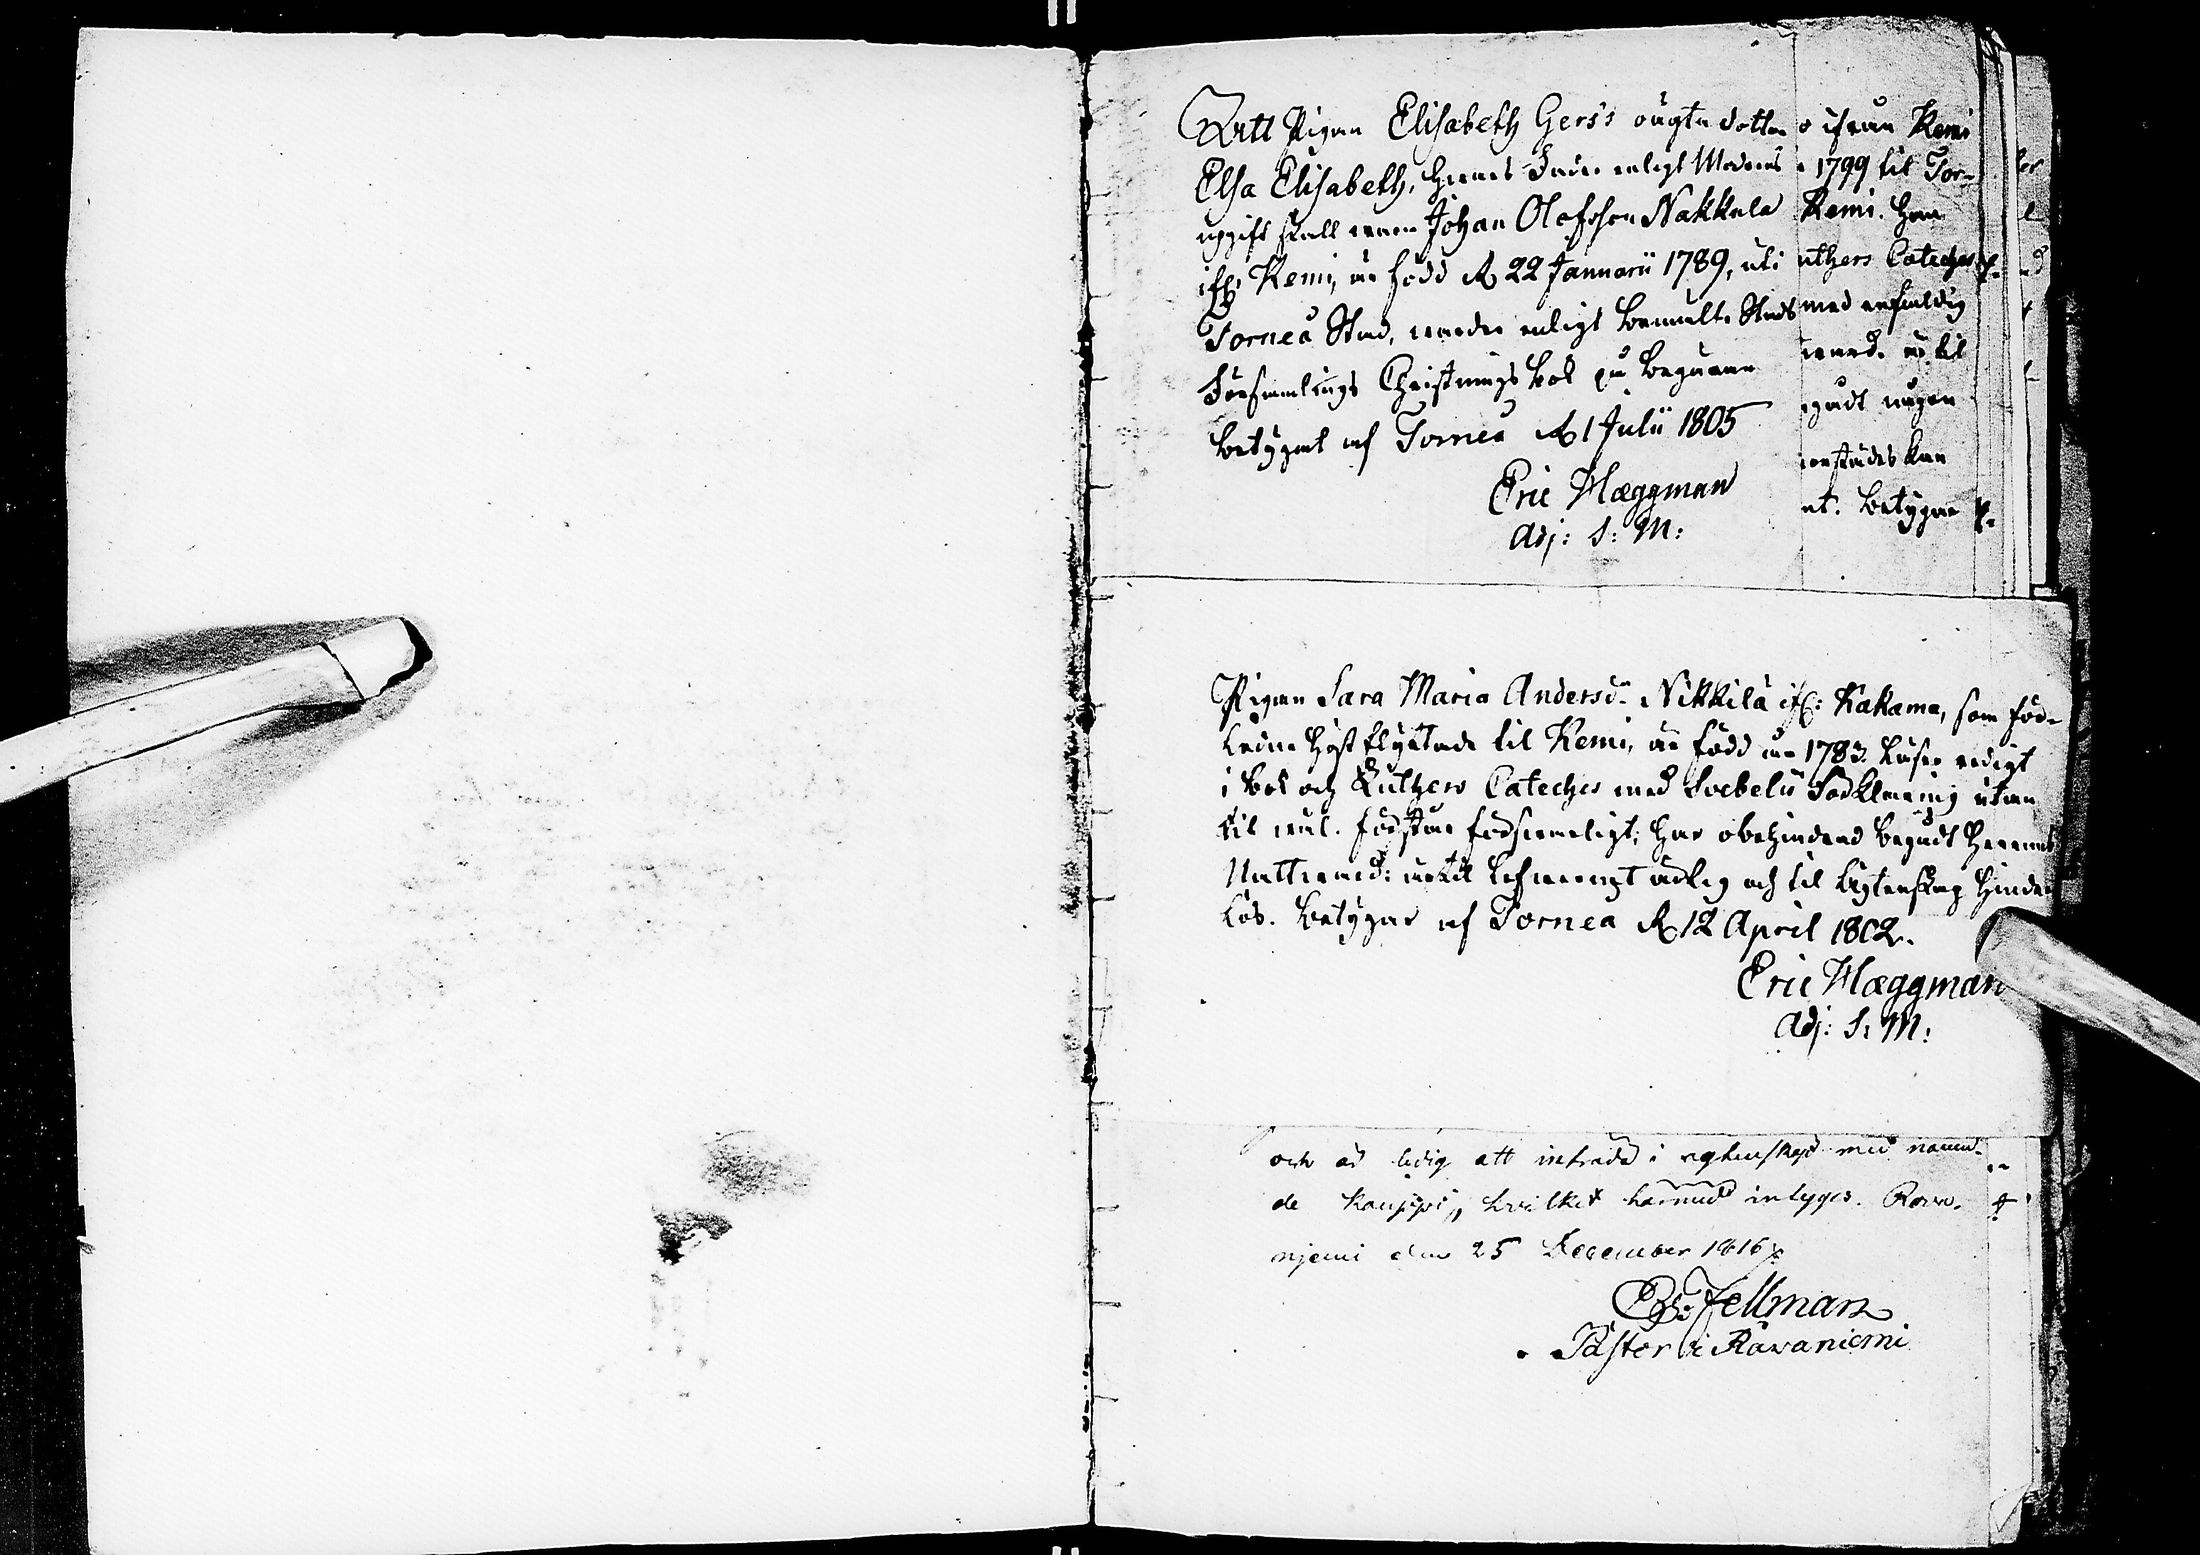 Att Pigan Elisabeth Gers's oägta dotter
Elsa Elisabeth, hvars Fader enligt Modrens
upgift skall vara Johan Olofsson Nakkula
ifr: Kemi, är född d. 22 Januarii 1789, uti
Torneå Stad, varder enligt bemälte Stads
Församlings Christnings bok på begäran
betygat af Torneå d. 1 Julii 1805
Eric Hæggman
Adj: S: M:
ifrån Kemi
1799 til Tor-
Kemi. Han
uthers Cateches
med enfaldig
til
någon
kan
nt. betygar
Pigan Sara Maria Andersd:r Nikkilä ifr: Kakama, som för-
ledne höst flyttade til Kemi, är född år 1783. Läser redigt
i bok och Lutheri Cateches med Svebelii Förklaring utan
til väl. förstår försvarligt; har obehindrad begådt Herrans
Nattvard: är til lefvernet ärlig och til ägtenskap hinder-
lös. betygar af Torneå d. 12 April 1802.
Eric Hæggman
Adj: S: M:
och är ledig att inträda i egtenskap med nämn-
de Kauppi, hvilket härmed intyges. Rova-
njemi den 25 December 1816.
Fellman
Pastor i Råvaniemi